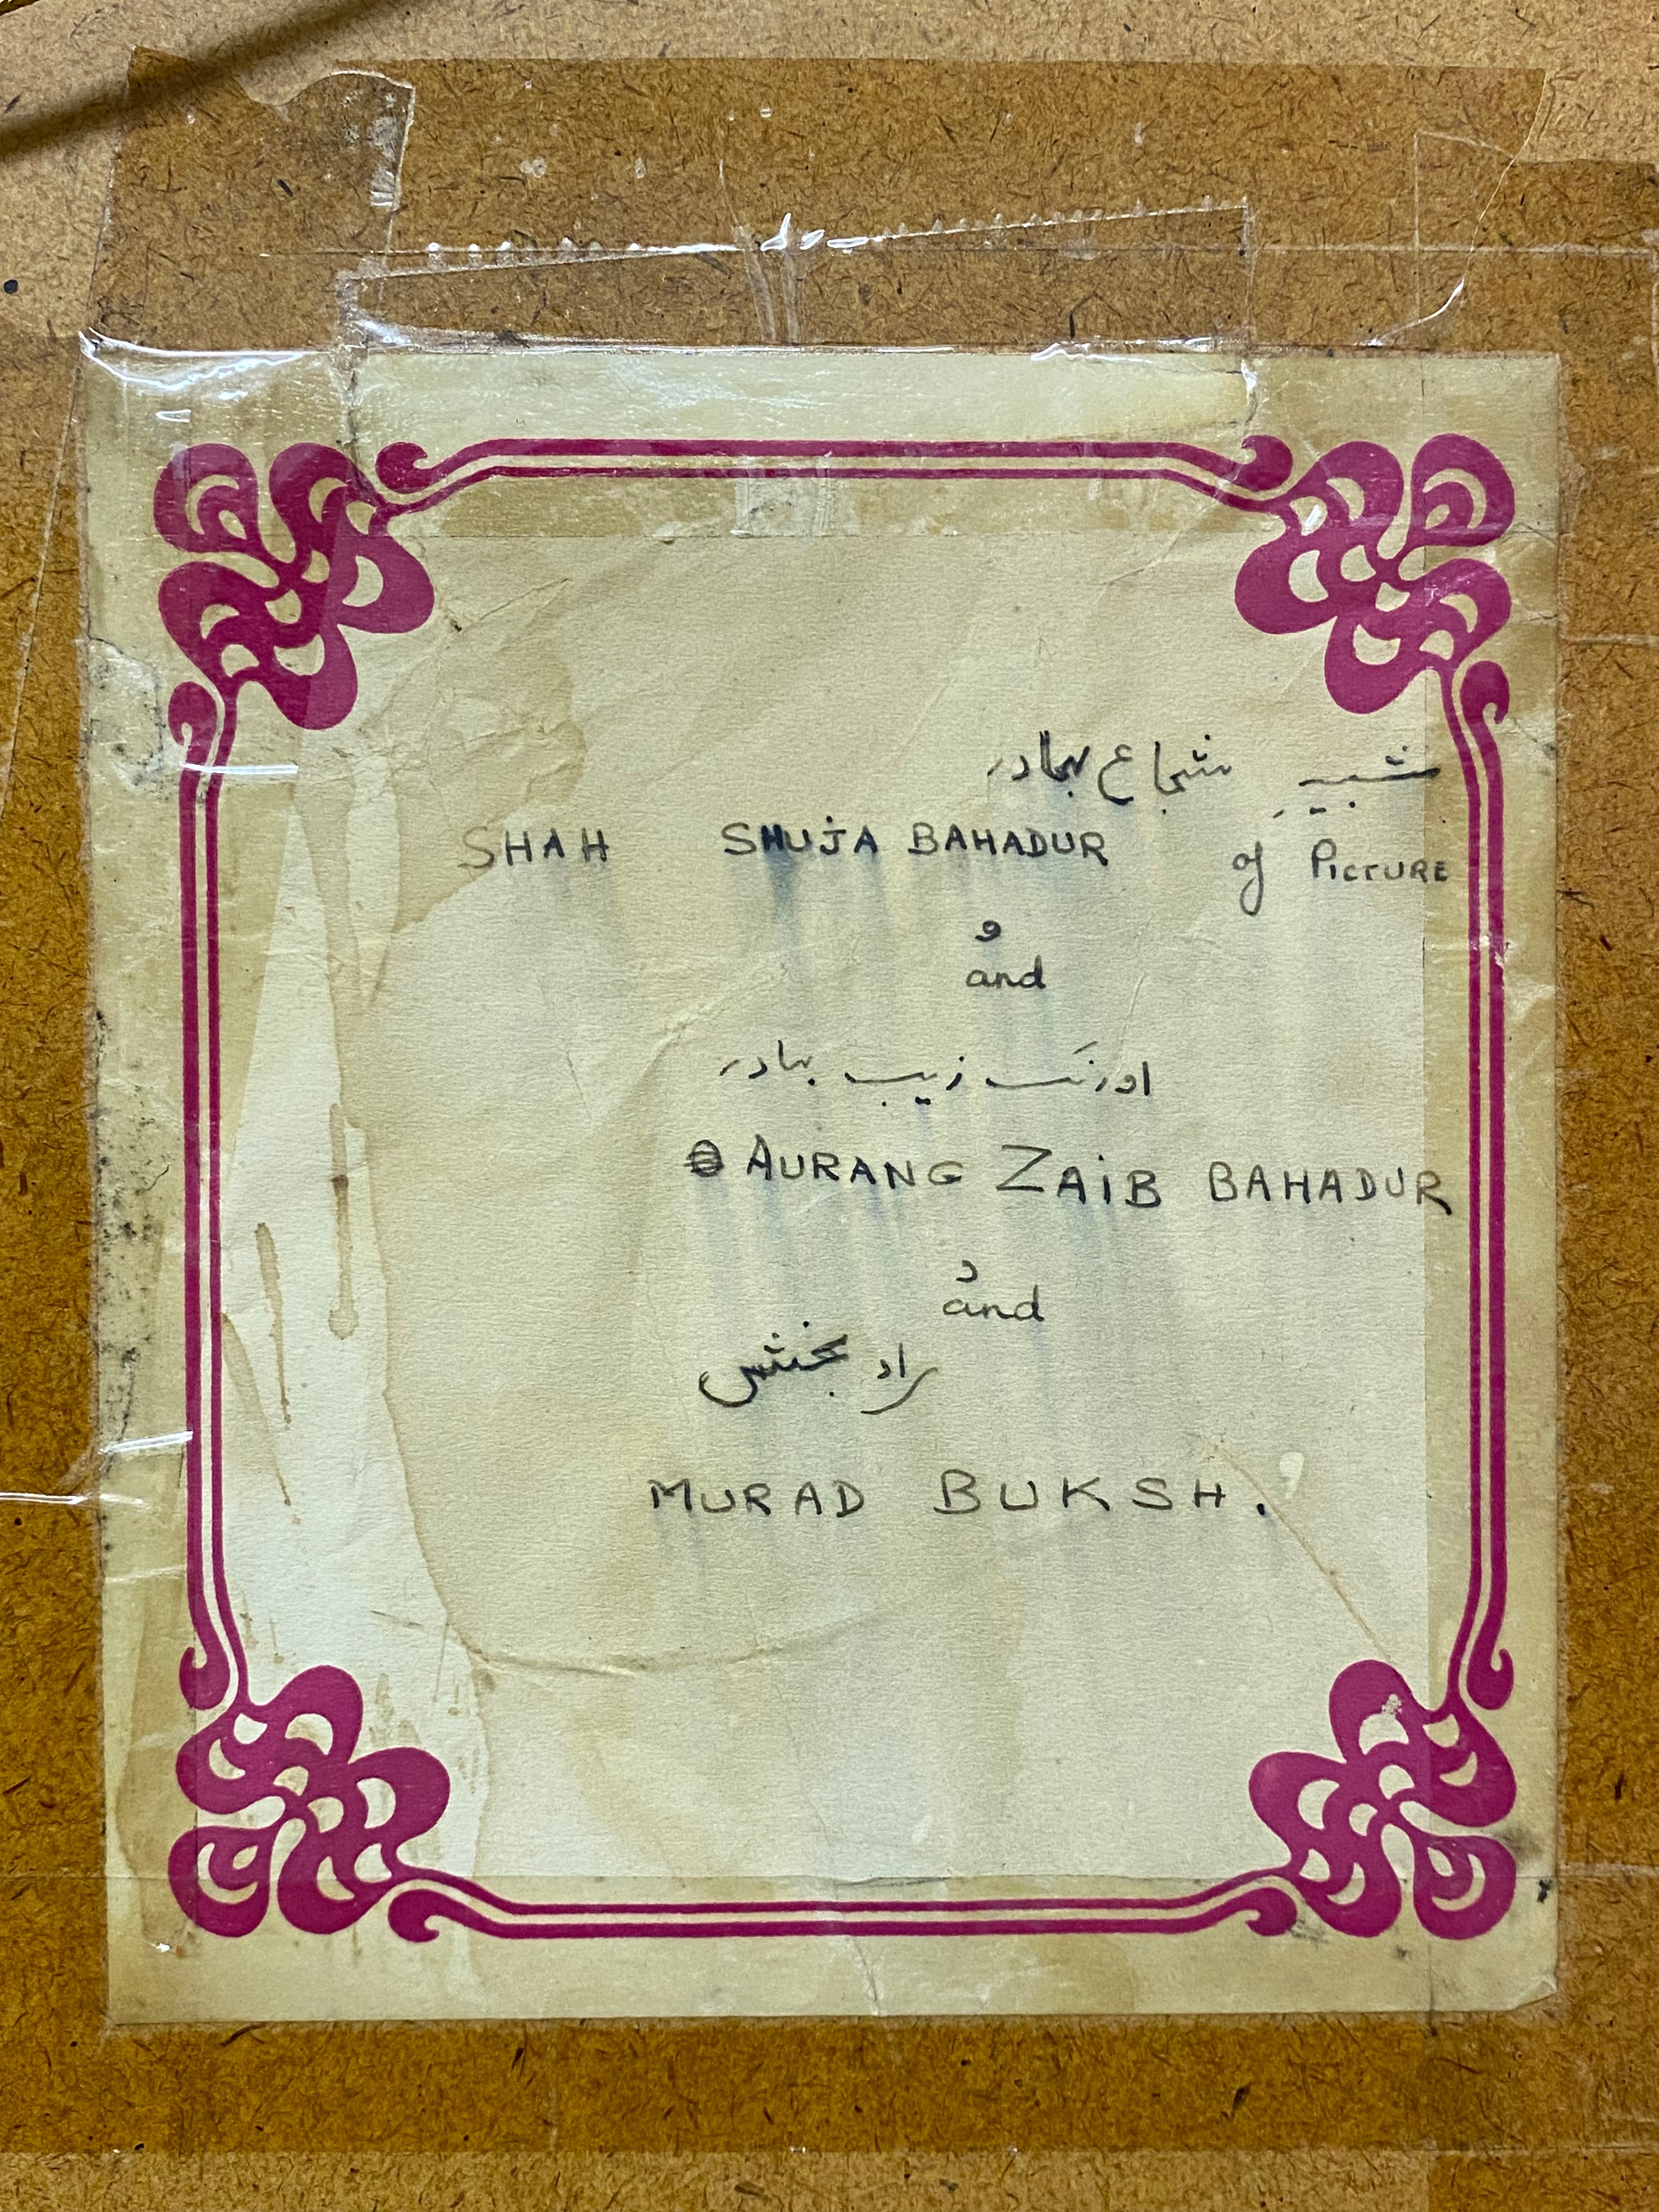 شبیہِ شجاع بہادر
SHAH SHUJA BAHADUR of PICTURE
و
and
اورنگ زیب بہادر
AURANG ZAIB BAHADUR
و
and
راد بخش
MURAD BUKSH.